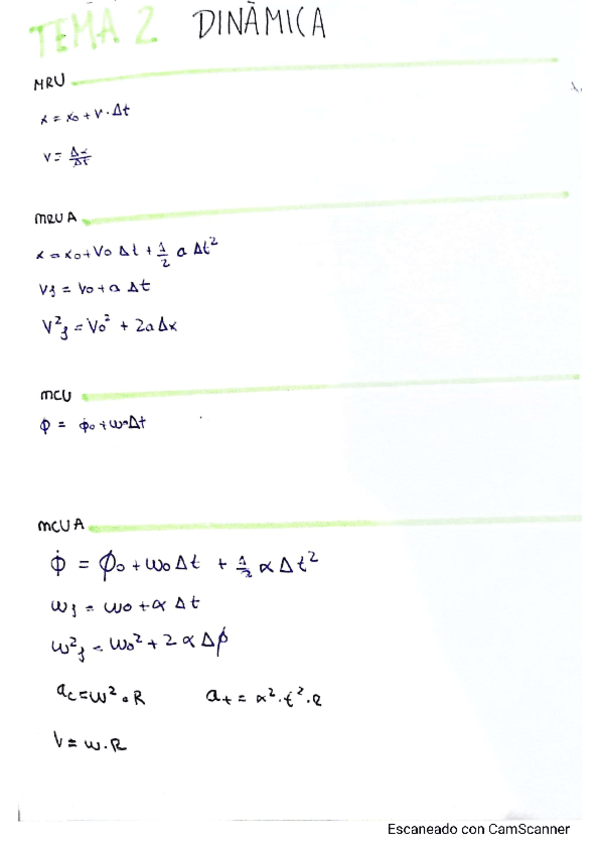 TEMA 2 DINÀMICA
MRU
x = x₀ + v · Δt
v = Δx/Δt
MRUA
x = x₀ + v₀ Δt + 1/2 a Δt²
vf = v₀ + a Δt
v²f = v₀² + 2a Δx
MCU
ϕ = ϕ₀ + ω·Δt
MCUA
ϕ = ϕ₀ + ω₀ Δt + 1/2 α Δt²
ωf = ω₀ + α Δt
ω²f = ω₀² + 2 α Δϕ
ac = ω² · R at = α² · t² · R
V = ω · R
Escaneado con CamScanner